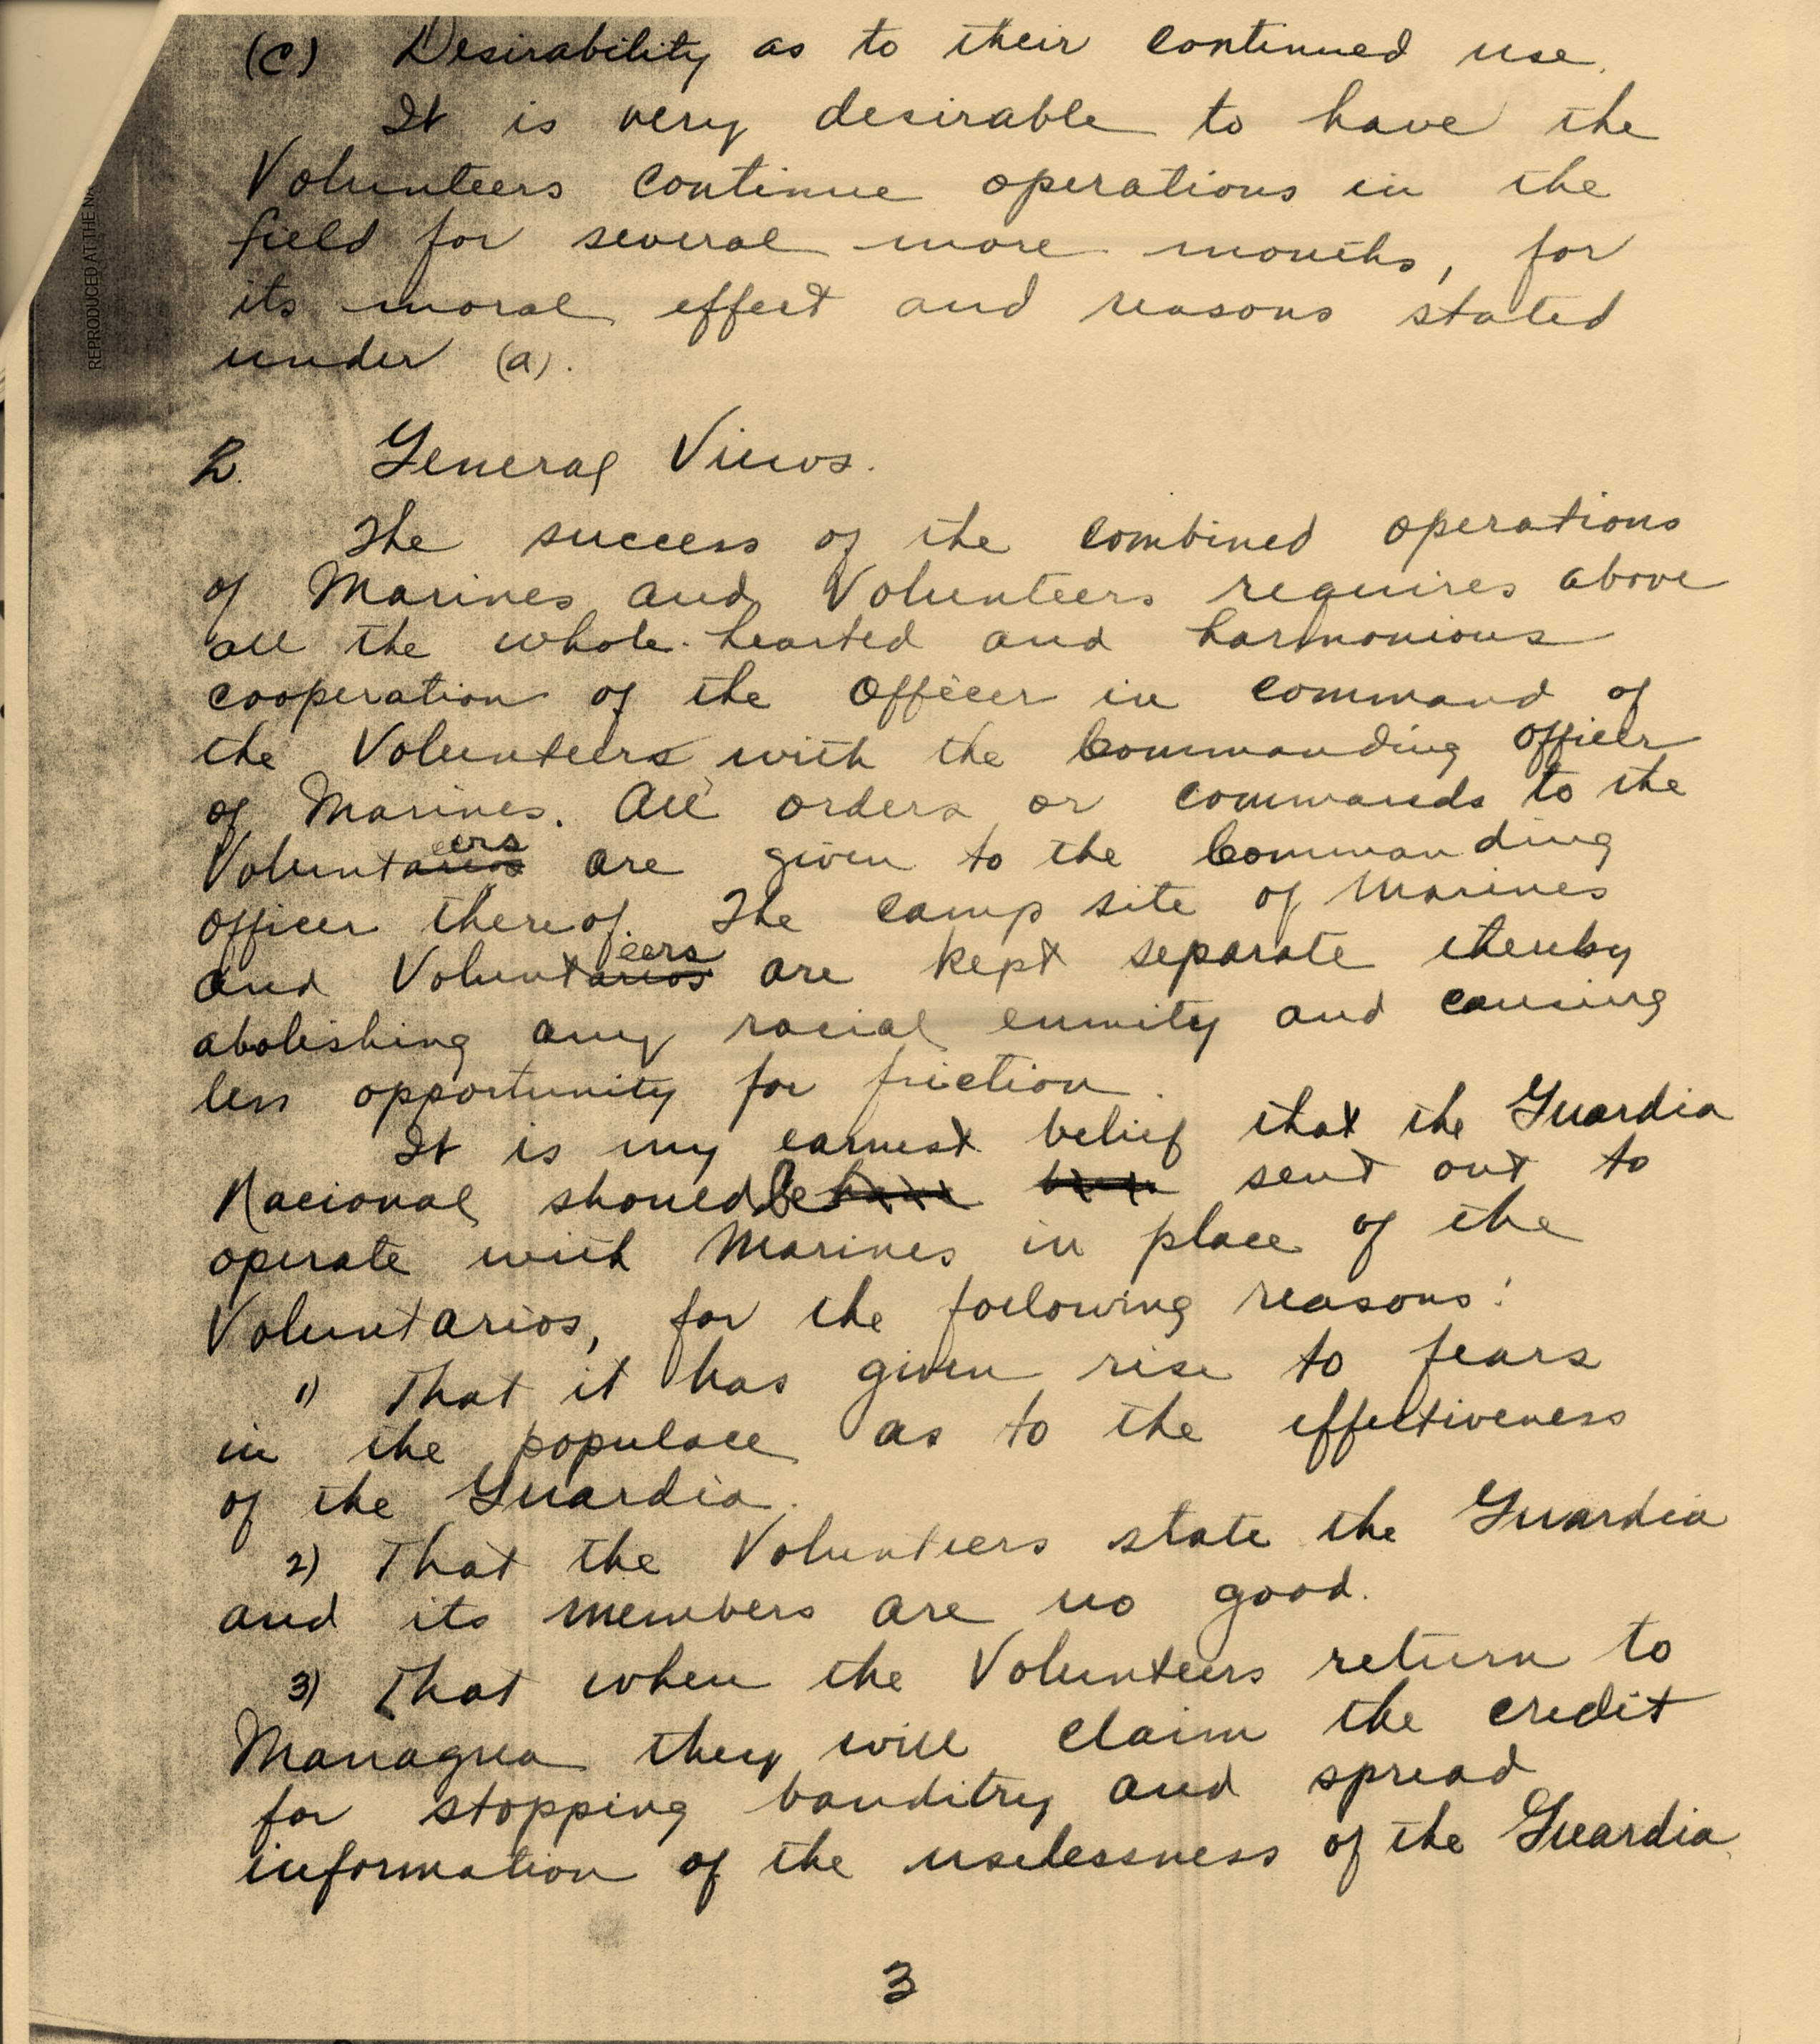 (c) Desirability as to their continued use.
It is very desirable to have the
Volunteers continue operations in the
field for several more months, for
its moral effect and reasons stated
under (a).
2. General Views.
The success of the combined operations
of Marines and Volunteers requires above
all the whole-hearted and harmonious
cooperation of the Officer in command of
the Volunteers with the Commanding Officer
of Marines. All orders or commands to the
Voluntarios eers are given to the Commanding
Officer thereof. The camp site of Marines
and Voluntarios eers are kept separate thereby
abolishing any racial enmity and causing
less opportunity for friction.
It is my earnest belief that the Guardia
Nacional should be have been sent out to
operate with Marines in place of the
Voluntarios, for the following reasons:
1) That it has given rise to fears
in the populace as to the effectiveness
of the Guardia.
2) That the Volunteers state the Guardia
and its members are no good.
3) That when the Volunteers return to
Managua they will claim the credit
for stopping banditry and spread
information of the uselessness of the Guardia.
3
REPRODUCED AT THE NA